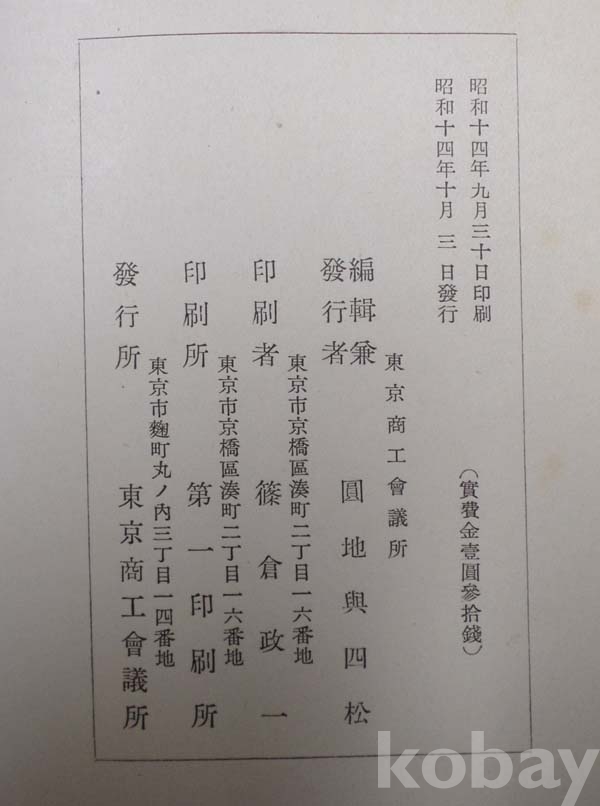 昭和十四年九月三十日印刷
昭和十四年十月三日發行
（實費金壹圓參拾錢）
東京商工會議所
編輯兼
發行者
圓地與四松
東京市京橋區湊町二丁目一六番地
印刷者
篠倉政一
東京市京橋區湊町二丁目一六番地
印刷所
第一印刷所
東京市麴町丸ノ內三丁目一四番地
發行所
東京商工會議所
kobay